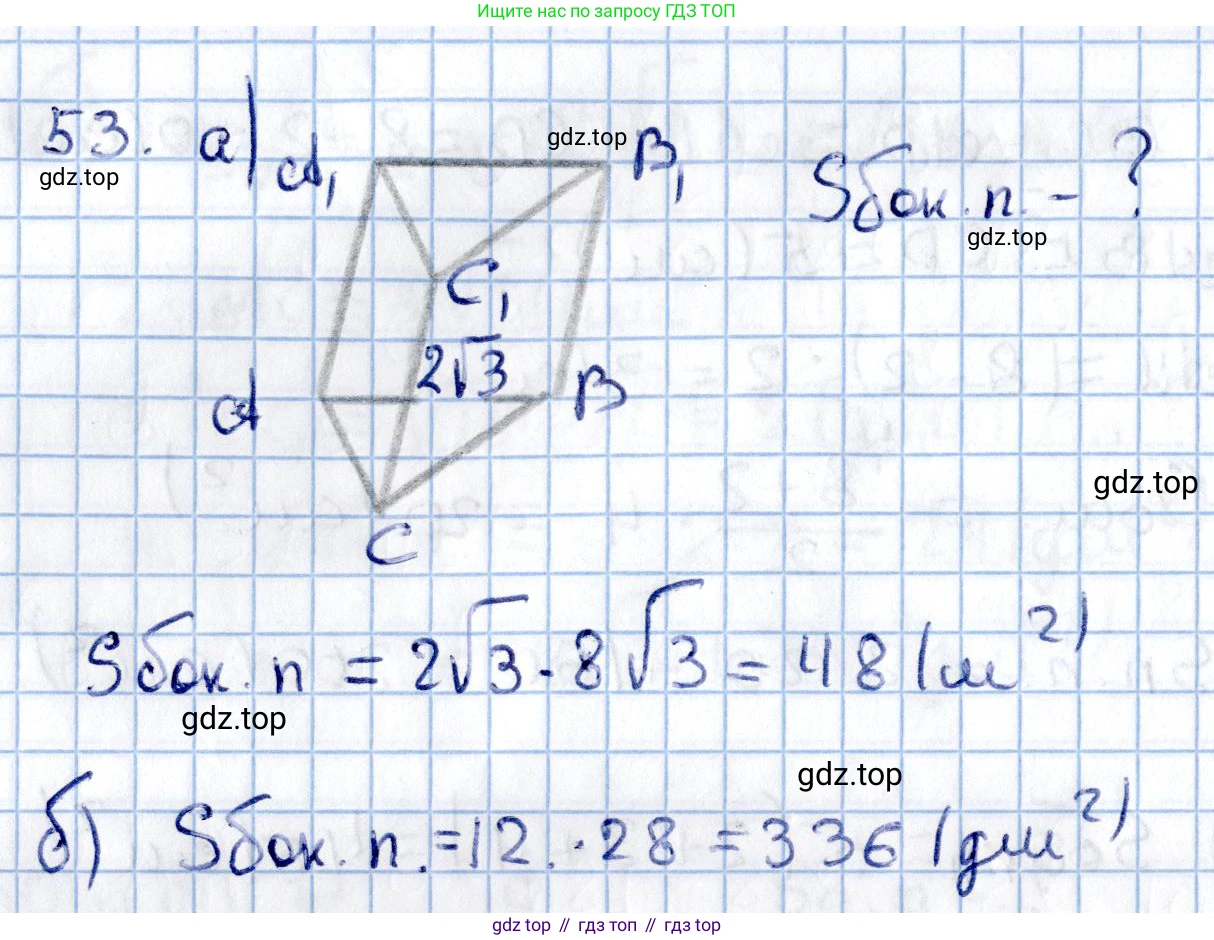 Ищите нас по запросу ГДЗ ТОП
53. а)
gdz.top
A₁
gdz.top
B₁
Sбок. п. - ?
gdz.top
C₁
2√3
A
B
gdz.top
C
Sбок. п = 2√3 · 8√3 = 48 (м²)
gdz.top
gdz.top
б) Sбок. п. = 12 . · 28 = 336 (дм²)
gdz.top // гдз топ // гдз.top